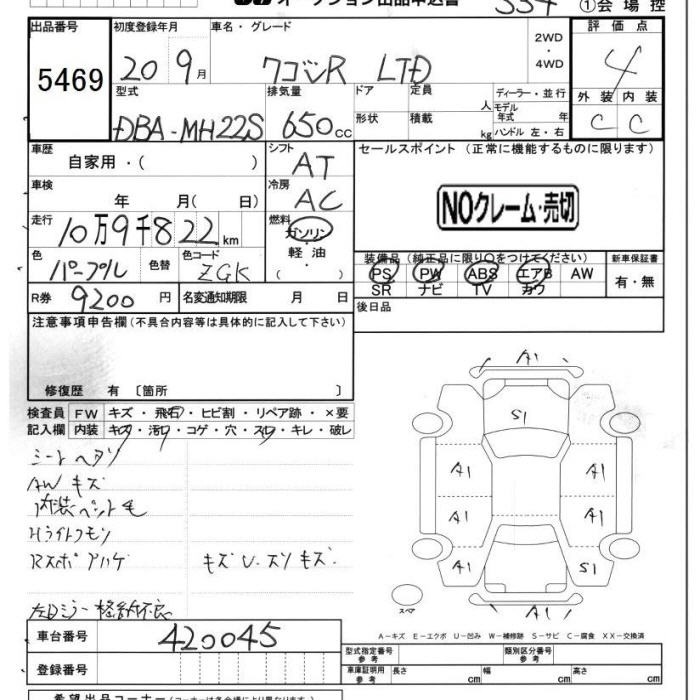 オークション出品申込書 334 ①会場控
出品番号 初度登録年月 車名・グレード 評価点
5469 20 9月 ワゴンR LTD 2WD・4WD 4
型式 排気量 ドア 定員 人 ディーラー・並行 外装 内装
DBA-MH22S 650cc 形状 積載 kg モデル年式 年 ハンドル 左・右 C C
車歴 自家用・( ) シフト AT セールスポイント (正常に機能するものに限ります)
車検 年 月( 日) 冷房 AC
NOクレーム・売切
走行 10万9千822km 燃料 ガソリン・軽油・( )
色 パープル 色替 色コード ZGK
装備品 (純正品に限り○をつけてください) 新車保証書
PS PW ABS エアB AW 有・無
SR ナビ TV カワ
R券 9200円 名変通知期限 月 日 後日品
注意事項申告欄(不具合内容等は具体的に記入して下さい)
修復歴 有 〔箇所 〕
検査員 FW キズ・飛石・ヒビ割・リペア跡・×要
記入欄 内装 キズ・汚れ・コゲ・穴・スレ・キレ・破レ
シートヘタリ
AWキズ
Hライトクモリ
キズU.スリキズ
A1
S1
A1 A1
A1 A1
A1 S1
A1
スペア
A-キズ E-エクボ U-凹み W-補修跡 S-サビ C-腐食 XX-交換済
車台番号 420045
型式指定番号 参考 類別区分番号 参考
登録番号 車庫証明用 参考 長さ cm 幅 cm 高さ cm
希望出品コーナー